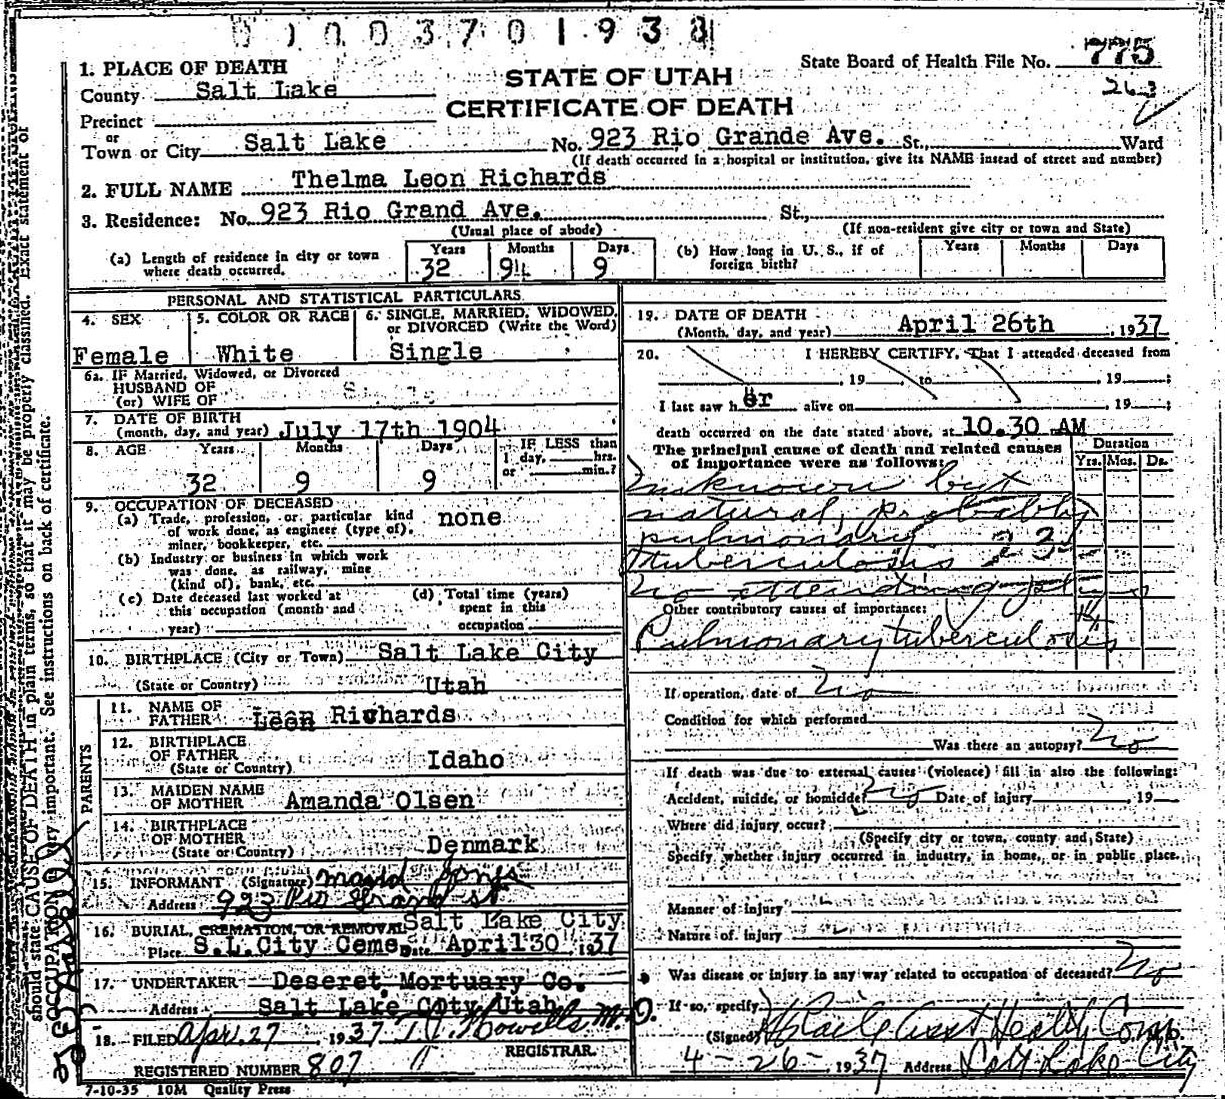 0000370193
State Board of Health File No. 775
263
1. PLACE OF DEATH
STATE OF UTAH
County Salt Lake
CERTIFICATE OF DEATH
Precinct
or
Town or City Salt Lake No. 923 Rio Grande Ave. St., Ward
(If death occurred in a hospital or institution, give its NAME instead of street and number)
2. FULL NAME Thelma Leon Richards
3. Residence: No. 923 Rio Grand Ave. St.,
(Usual place of abode) (If non-resident give city or town and State)
(a) Length of residence in city or town where death occurred. Years 32 Months 9 Days 9
(b) How long in U. S., if of foreign birth? Years Months Days
PERSONAL AND STATISTICAL PARTICULARS
4. SEX Female
5. COLOR OR RACE White
6. SINGLE, MARRIED, WIDOWED, or DIVORCED (Write the Word) Single
6a. IF Married, Widowed, or Divorced
HUSBAND OF
(or) WIFE OF
7. DATE OF BIRTH
(month, day, and year) July 17th 1904
8. AGE Years 32 Months 9 Days 9 IF LESS than 1 day, hrs. or min.?
9. OCCUPATION OF DECEASED
(a) Trade, profession, or particular kind of work done, as engineer (type of), miner, bookkeeper, etc. none
(b) Industry or business in which work was done, as railway, mine (kind of), bank, etc.
(c) Date deceased last worked at this occupation (month and year)
(d) Total time (years) spent in this occupation
10. BIRTHPLACE (City or Town) Salt Lake City
(State or Country) Utah
PARENTS
11. NAME OF FATHER Leon Richards
12. BIRTHPLACE OF FATHER
(State or Country) Idaho
13. MAIDEN NAME OF MOTHER Amanda Olsen
14. BIRTHPLACE OF MOTHER
(State or Country) Denmark
15. INFORMANT (Signature) Maud Jones
Address 923 Rio Grand St
16. BURIAL, CREMATION, OR REMOVAL Salt Lake City
Place S.L.City Ceme. Date April 30 1937
17. UNDERTAKER Deseret Mortuary Co.
Address Salt Lake City Utah
18. FILED Apr 27 1937 T. J. Howells M.D.
REGISTRAR.
REGISTERED NUMBER 807
7-10-35 10M Quality Press
19. DATE OF DEATH
(Month, day, and year) April 26th, 1937
20. I HEREBY CERTIFY, That I attended deceased from
, 19 , to , 19 ;
I last saw her alive on , 19 ;
death occurred on the date stated above, at 10.30 AM
The principal cause of death and related causes of importance were as follows: Duration Yrs. Mos. Ds.
Unknown but
natural, probably
pulmonary 23
tuberculosis
no attending
Other contributory causes of importance:
Pulmonary tuberculosis
If operation, date of No
Condition for which performed
Was there an autopsy? No
If death was due to external causes (violence) fill in also the following:
Accident, suicide, or homicide? No Date of injury , 19
Where did injury occur?
(Specify city or town, county and State)
Specify whether injury occurred in industry, in home, or in public place.
Manner of injury
Nature of injury
Was disease or injury in any way related to occupation of deceased? No
If so, specify
(Signed) Asst Health Com
4-26-1937 Address Salt Lake City
should state CAUSE OF DEATH in plain terms, so that it may be properly classified. Exact statement of
OCCUPATION is very important. See instructions on back of certificate.